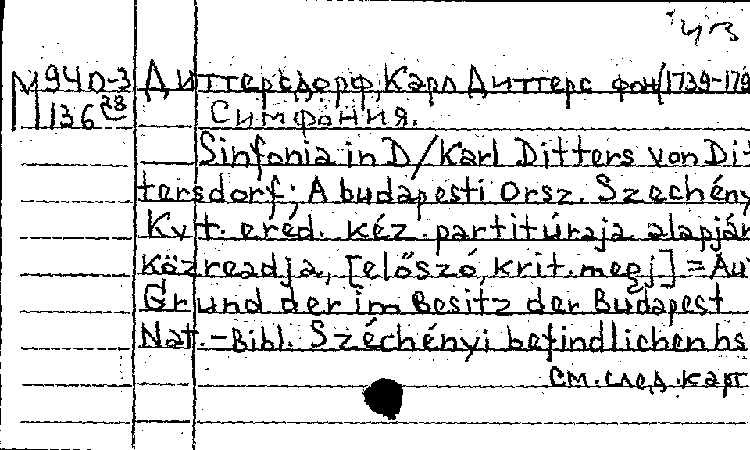 М 940-3 Диттерсдорф, Карл Диттерс фон (1739-179
136 28 Симфония.
Sinfonia in D/Karl Ditters von Dit
tersdorf; A budapesti Orsz. Szechény
Kvt. ered. kéz. partitúraja alapján
közreadja, [előszó, krit. megj.] = Au
Grund der im Besitz der Budapest
Nat.-Bibl. Széchényi befindlichen hs
См. след. карт